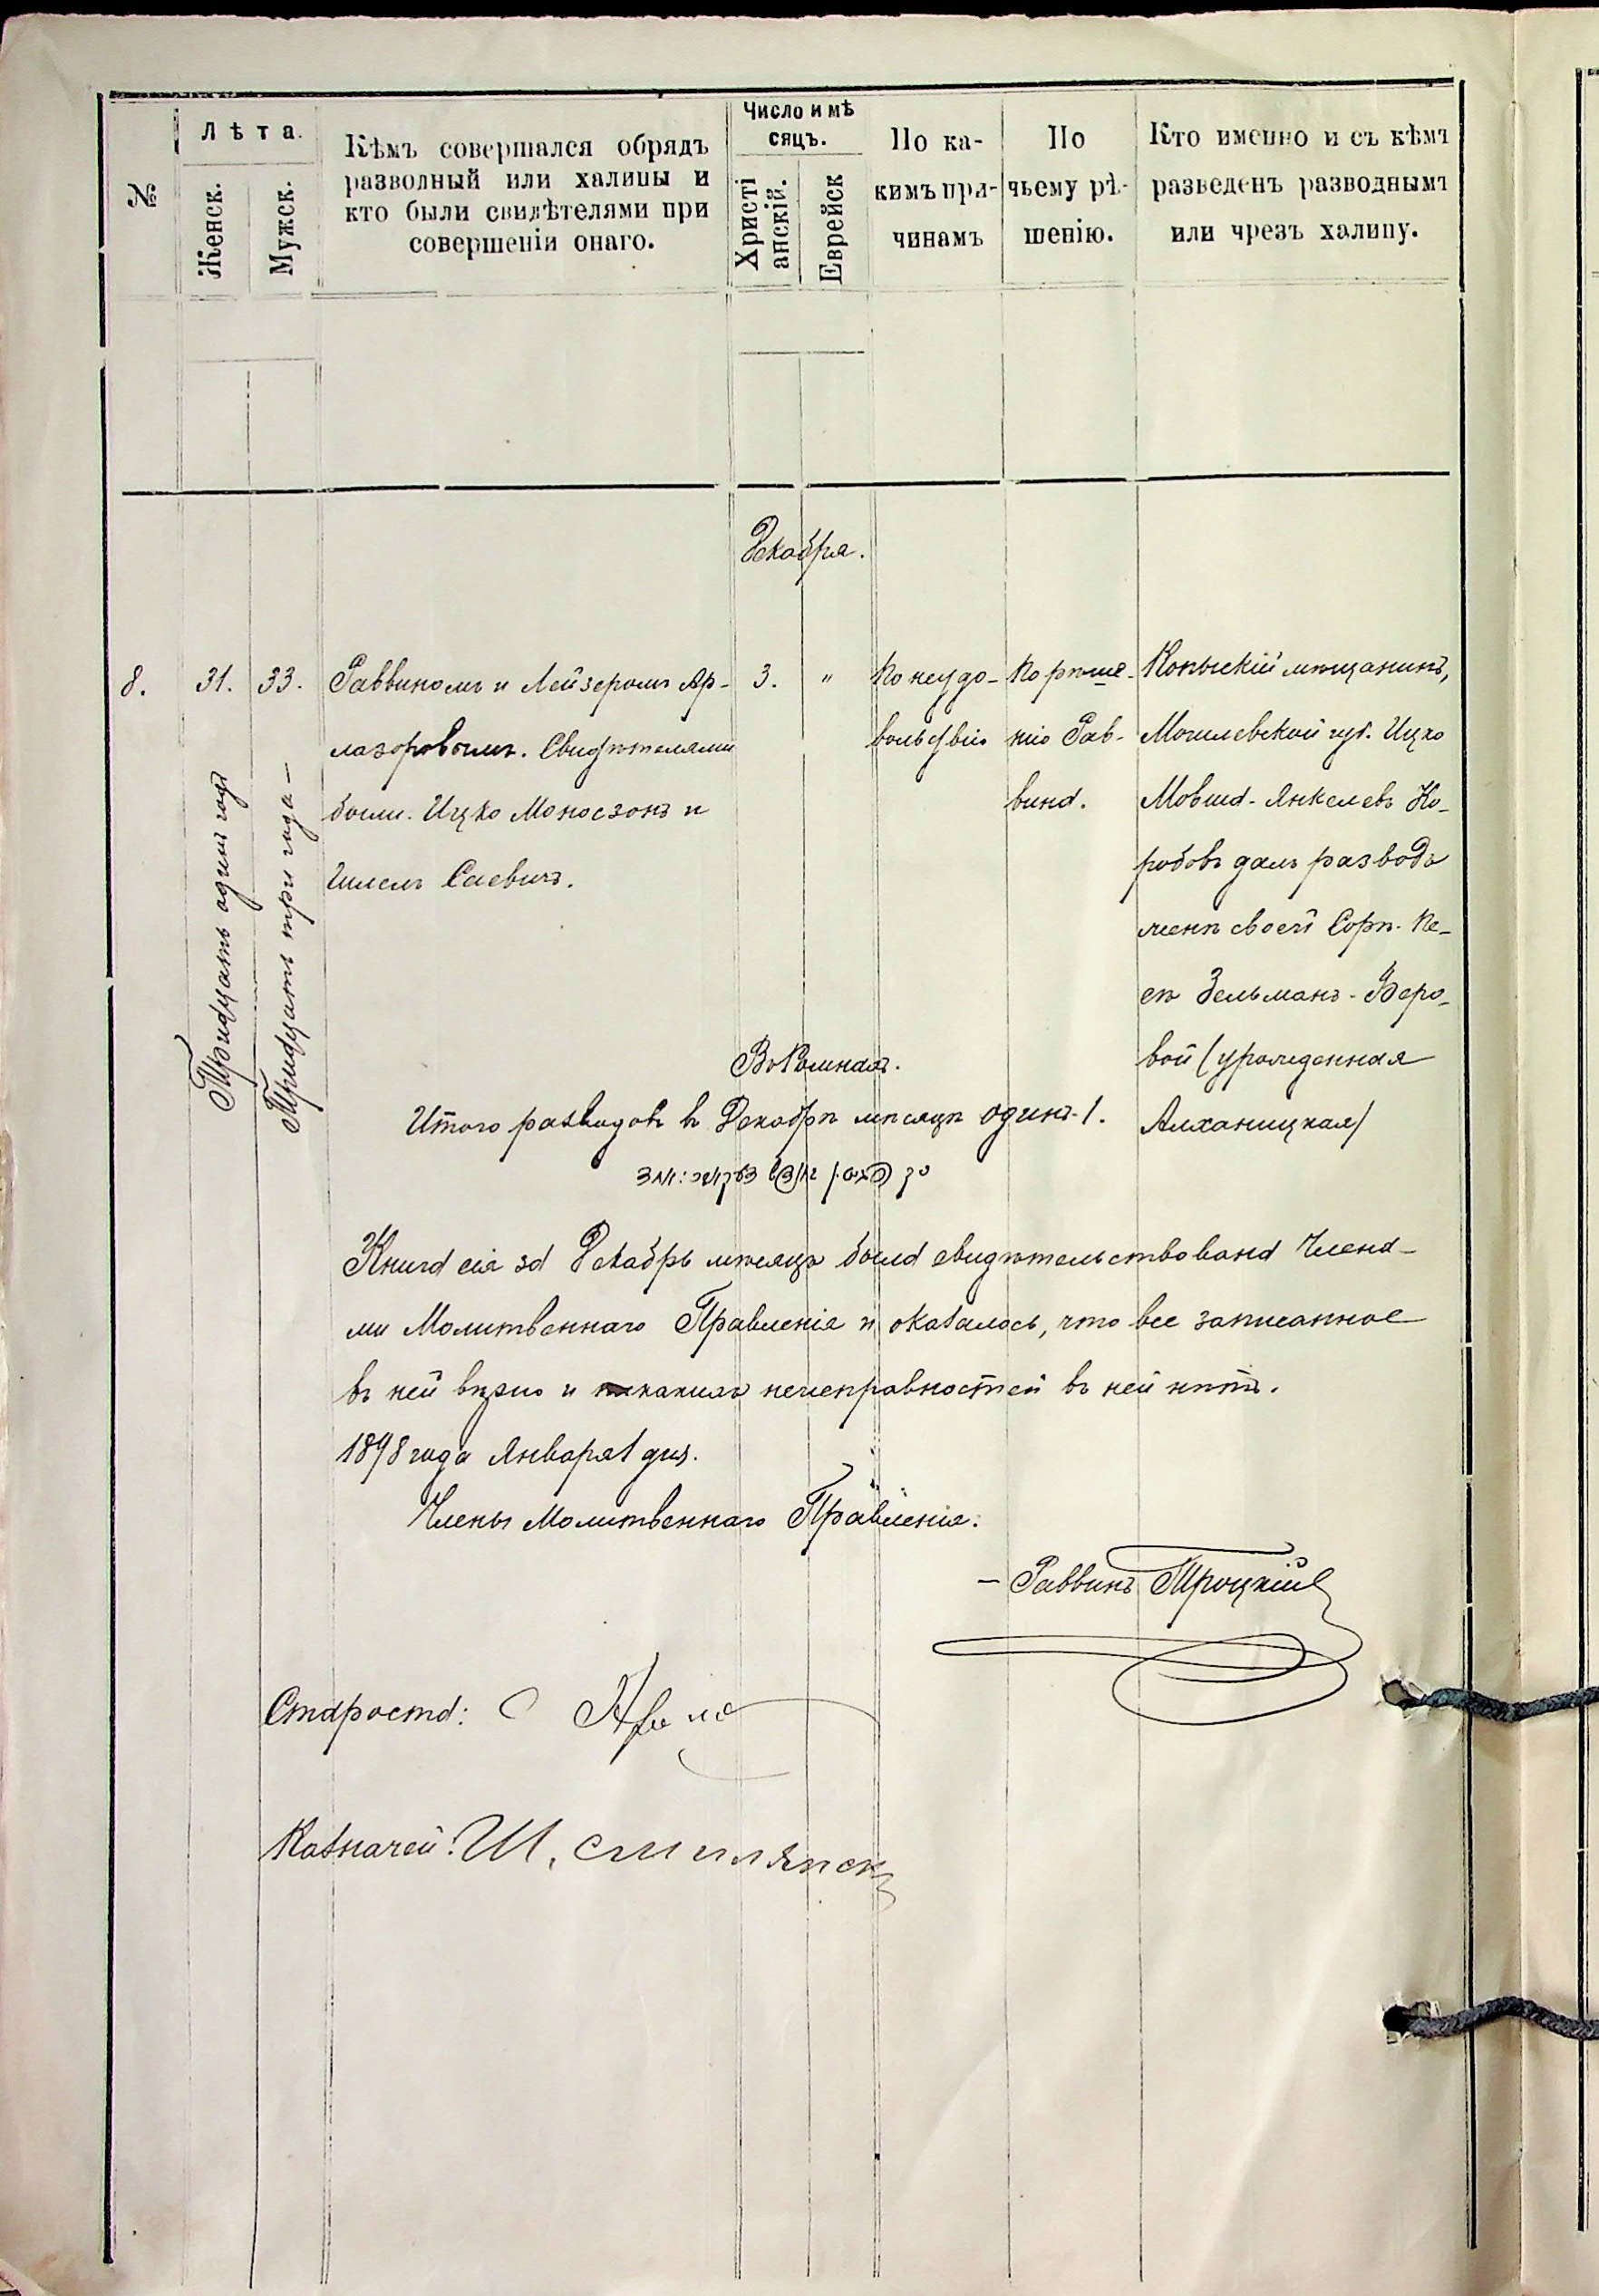 №
Лѣта.
Женск.
Мужск.
Кѣмъ совершался обрядъ
разводный или халицы и
кто были свидѣтелями при
совершеніи онаго.
Число и мѣ
сяцъ.
Христі
анскій.
Еврейск
По ка-
кимъ при-
чинамъ
По
чьему рѣ-
шенію.
Кто именно и съ кѣмъ
разведенъ разводнымъ
или чрезъ халицу.
Декабря.
8.
31.
Тридцать одинъ годъ
33.
Тридцать три года —
Раввиномъ и Лейзеромъ Ар-
лазоровымъ. Свидѣтелями
были. Ицко Моносзонъ и
Гилель Саевичъ.
3.
"
По неудо-
вольствію
По рѣше-
нію Рав-
вина.
Копыскій мѣщанинъ,
Могилевской губ. Ицко
Мовша-Янкелевъ Ко-
робовъ далъ разводъ
женѣ своей Сорѣ-Пе-
сѣ Зельманъ-Беро-
вой (урожденная
Алханицкая)
Итого разводовъ въ Декабрѣ мѣсяцѣ одинъ-1.
Книга сія за Декабрь мѣсяцъ была свидѣтельствована Члена-
ми Молитвеннаго Правленія и оказалось, что все записанное
въ ней вѣрно и никакихъ неисправностей въ ней нѣтъ.
1898 года Января 1 дня.
Члены Молитвеннаго Правленія.
— Раввинъ Троцкій
Староста:
Казначей: Ш.